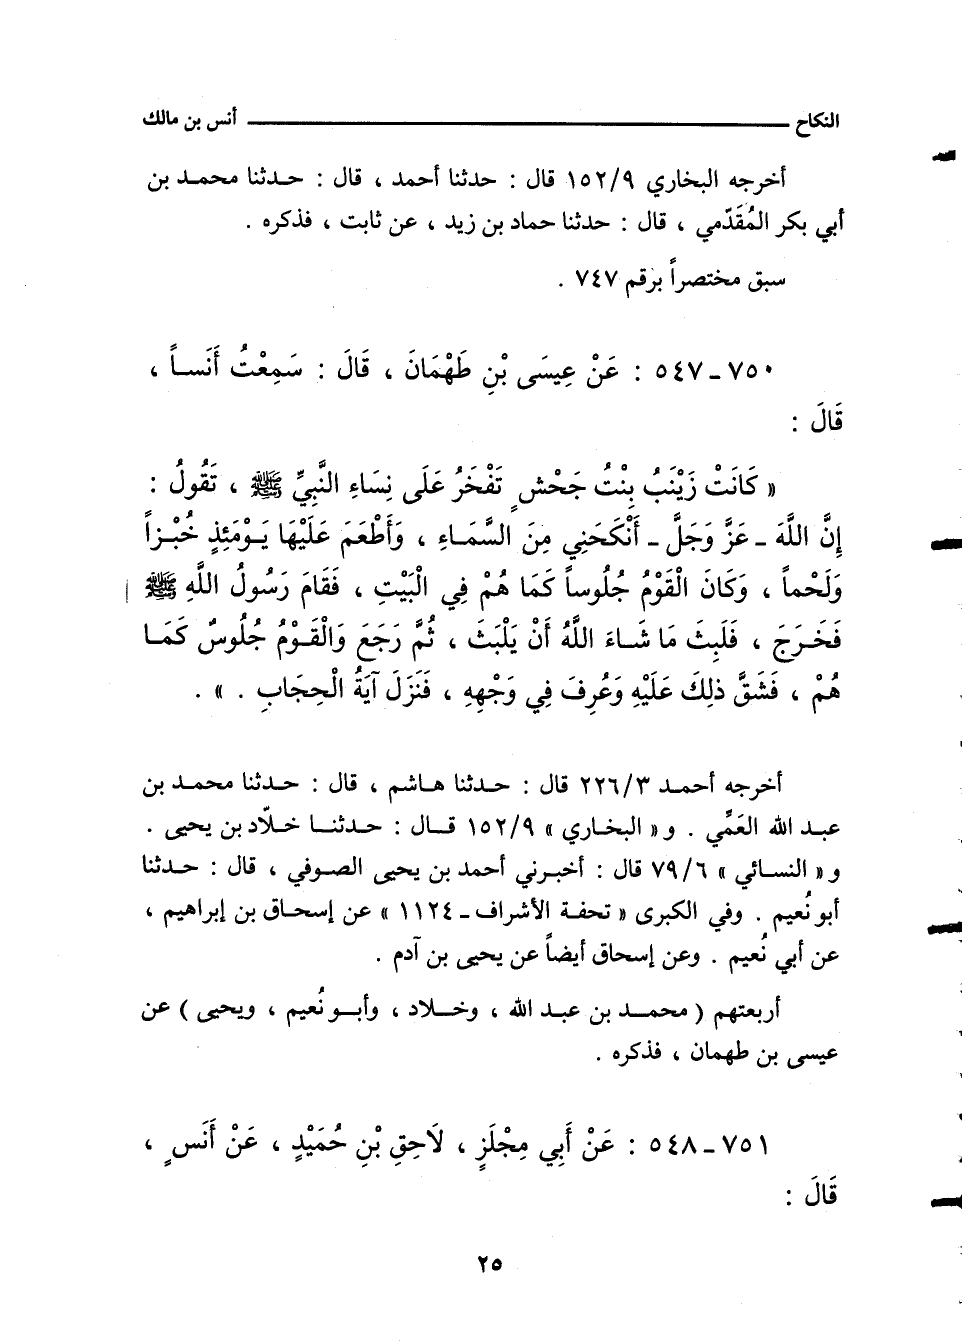 النكاح ـــــــــــــــــ أنس بن مالك
أخرجه البخاري ١٥٢/٩ قال : حدثنا أحمد ، قال : حدثنا محمد بن
أبي بكر المُقَدّمي ، قال : حدثنا حماد بن زيد ، عن ثابت ، فذكره .
سبق مختصراً برقم ٧٤٧ .
٧٥٠ ـ ٥٤٧ : عَنْ عِيسَى بْنِ طَهْمَانَ ، قَالَ : سَمِعْتُ أَنَساً ،
قَالَ :
« كَانَتْ زَيْنَبُ بِنْتُ جَحْشٍ تَفْخَرُ عَلَى نِسَاءِ النَّبِيِّ ﷺ ، تَقُولُ :
إِنَّ اللَّهَ ـ عَزَّ وَجَلَّ ـ أَنْكَحَنِي مِنَ السَّمَاءِ ، وَأَطْعَمَ عَلَيْهَا يَوْمَئِذٍ خُبْزاً
وَلَحْماً ، وَكَانَ الْقَوْمُ جُلُوساً كَمَا هُمْ فِي الْبَيْتِ ، فَقَامَ رَسُولُ اللَّهِ ﷺ
فَخَرَجَ ، فَلَبِثَ مَا شَاءَ اللَّهُ أَنْ يَلْبَثَ ، ثُمَّ رَجَعَ وَالْقَوْمُ جُلُوسٌ كَمَا
هُمْ ، فَشَقَّ ذلِكَ عَلَيْهِ وَعُرِفَ فِي وَجْهِهِ ، فَنَزَلَ آيَةُ الْحِجَابِ . » .
أخرجه أحمد ٢٢٦/٣ قال : حدثنا هاشم ، قال : حدثنا محمد بن
عبد الله العَمِّي . و« البخاري » ١٥٢/٩ قال : حدثنا خلّاد بن يحيى .
و« النسائي » ٧٩/٦ قال : أخبرني أحمد بن يحيى الصوفي ، قال : حدثنا
أبو نُعيم . وفي الكبرى « تحفة الأشراف ـ ١١٢٤ » عن إسحاق بن إبراهيم ،
عن أبي نُعيم . وعن إسحاق أيضاً عن يحيى بن آدم .
أربعتهم ( محمد بن عبد الله ، وخلاد ، وأبو نُعيم ، ويحيى ) عن
عيسى بن طهمان ، فذكره .
٧٥١ ـ ٥٤٨ : عَنْ أَبِي مِجْلَزٍ ، لاَحِقِ بْنِ حُمَيْدٍ ، عَنْ أَنَسٍ ،
قَالَ :
٢٥